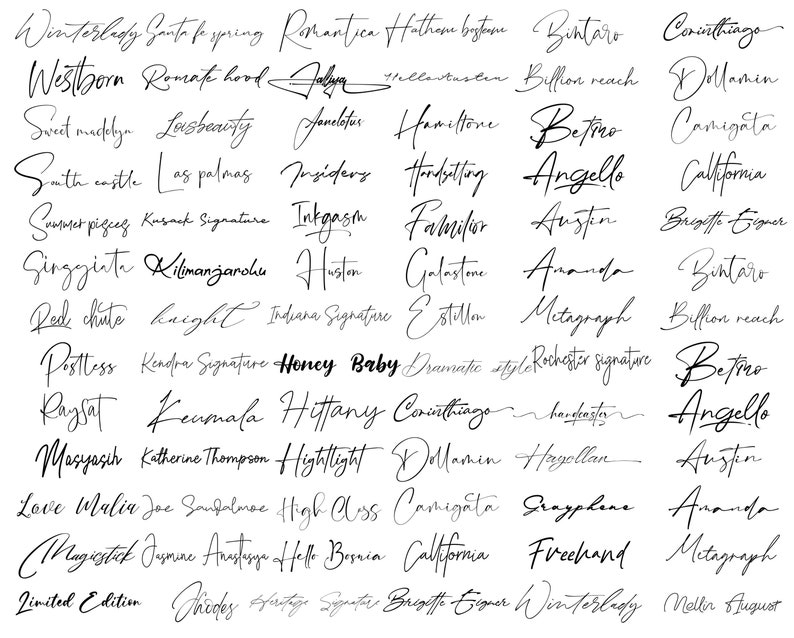 Winterlady Santa fe spring Romantica Hatheme bosteem Bintaro Corinthiago
Westborn Romate hood Jallya HelloAusten Billion reach Dollamin
Sweet madelyn Loisbeauty Janelotus Hamiltone Betmo Camigata
South castle Las palmas Insiders Handsetting Angello Callifornia
Summer pisces Kusack Signature Inkgasm Familior Austin Brigitte Eigner
Singgiata Kilimanjaroku Huston Galastone Amanda Bintaro
Red chute knight Indiana Signature Estillon Metagraph Billion reach
Postless Kendra Signature Honey Baby Dramatic style Rochester signature Betmo
Raysat Keumala Hittany Corinthiago handcaster Angello
Masyosih Katherine Thompson Hightlight Dollamin Hagellan Austin
Love Malia Joe Sandalmoe High Class Camigata Grayphene Amanda
Magicstick Jasmine Anastasya Hello Bosnia Callifornia Freehand Metagraph
Limited Edition Jhodes Heritage Signature Brigitte Eigner Winterlady Mellin August